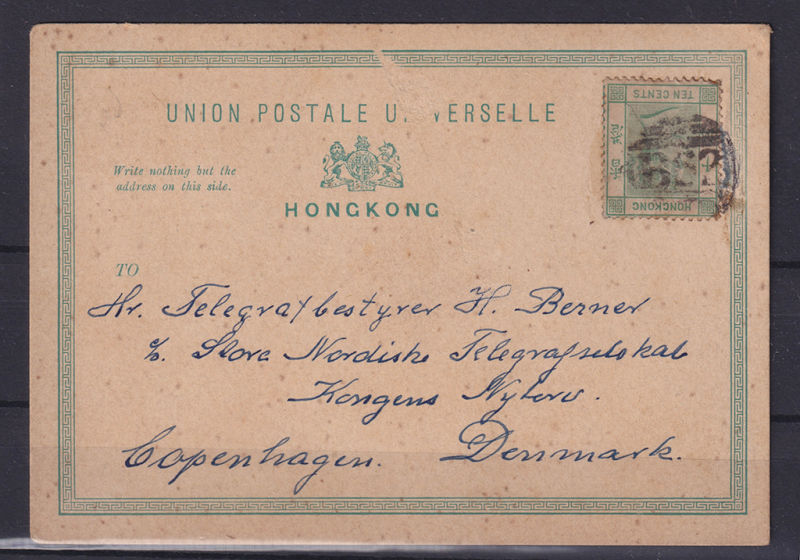 UNION POSTALE U. VERSELLE
TEN CENTS
HONGKONG
B62
Write nothing but the
address on this side.
HONGKONG
TO
Hr. Telegrafbestyrer H. Berner
c/o Store Nordiske Telegrafselskab
Kongens Nytorv.
Copenhagen. Denmark.